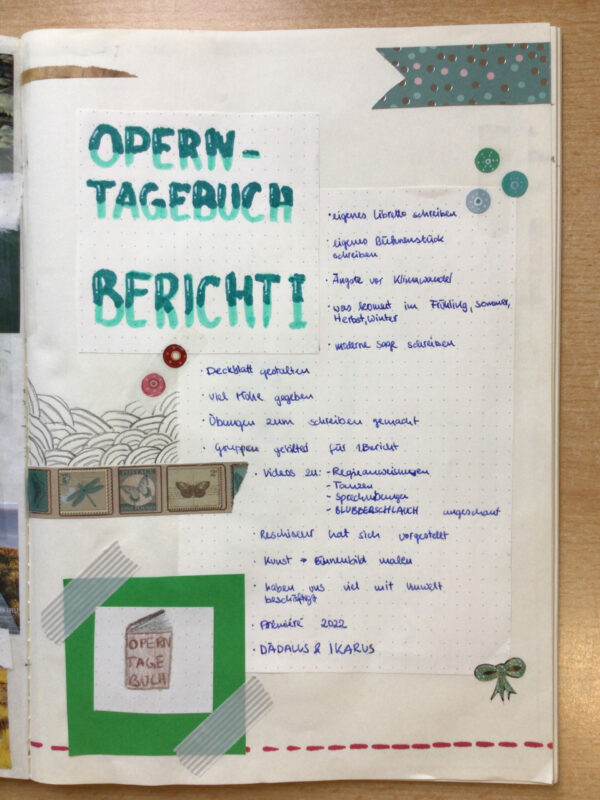 OPERN-
TAGEBUCH
BERICHT I
· eigenes Libretto schreiben
· eigenes Bühnenstück
schreiben
· Ängste vor Klimwandel
· was kommt im Frühling, Sommer,
Herbst, Winter
· moderne Sage schreiben
· Deckblatt gestalten
· viel Mühe gegeben
· Übungen zum schreiben gemacht
· Gruppen für 1. Bericht
· Videos zu: - Regieanweisungen
- Tanzen
- Sprachübungen
- BLUBBERSCHLAUCH angeschaut
· Reschiseur hat sich vorgestellt
· Kunst → Bühnenbild malen
· haben uns viel mit Umwelt
beschäftigt
· Premiere 2022
· DÄDALUS & IKARUS
OPERN
TAGE
BUCH